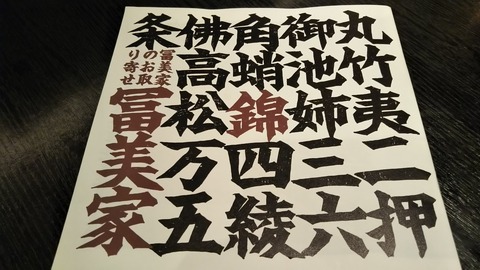 丸竹夷二押
御池姉三六
角蛸錦四綾
佛高松万五
条
冨美家
のお取
り寄せ
冨美家